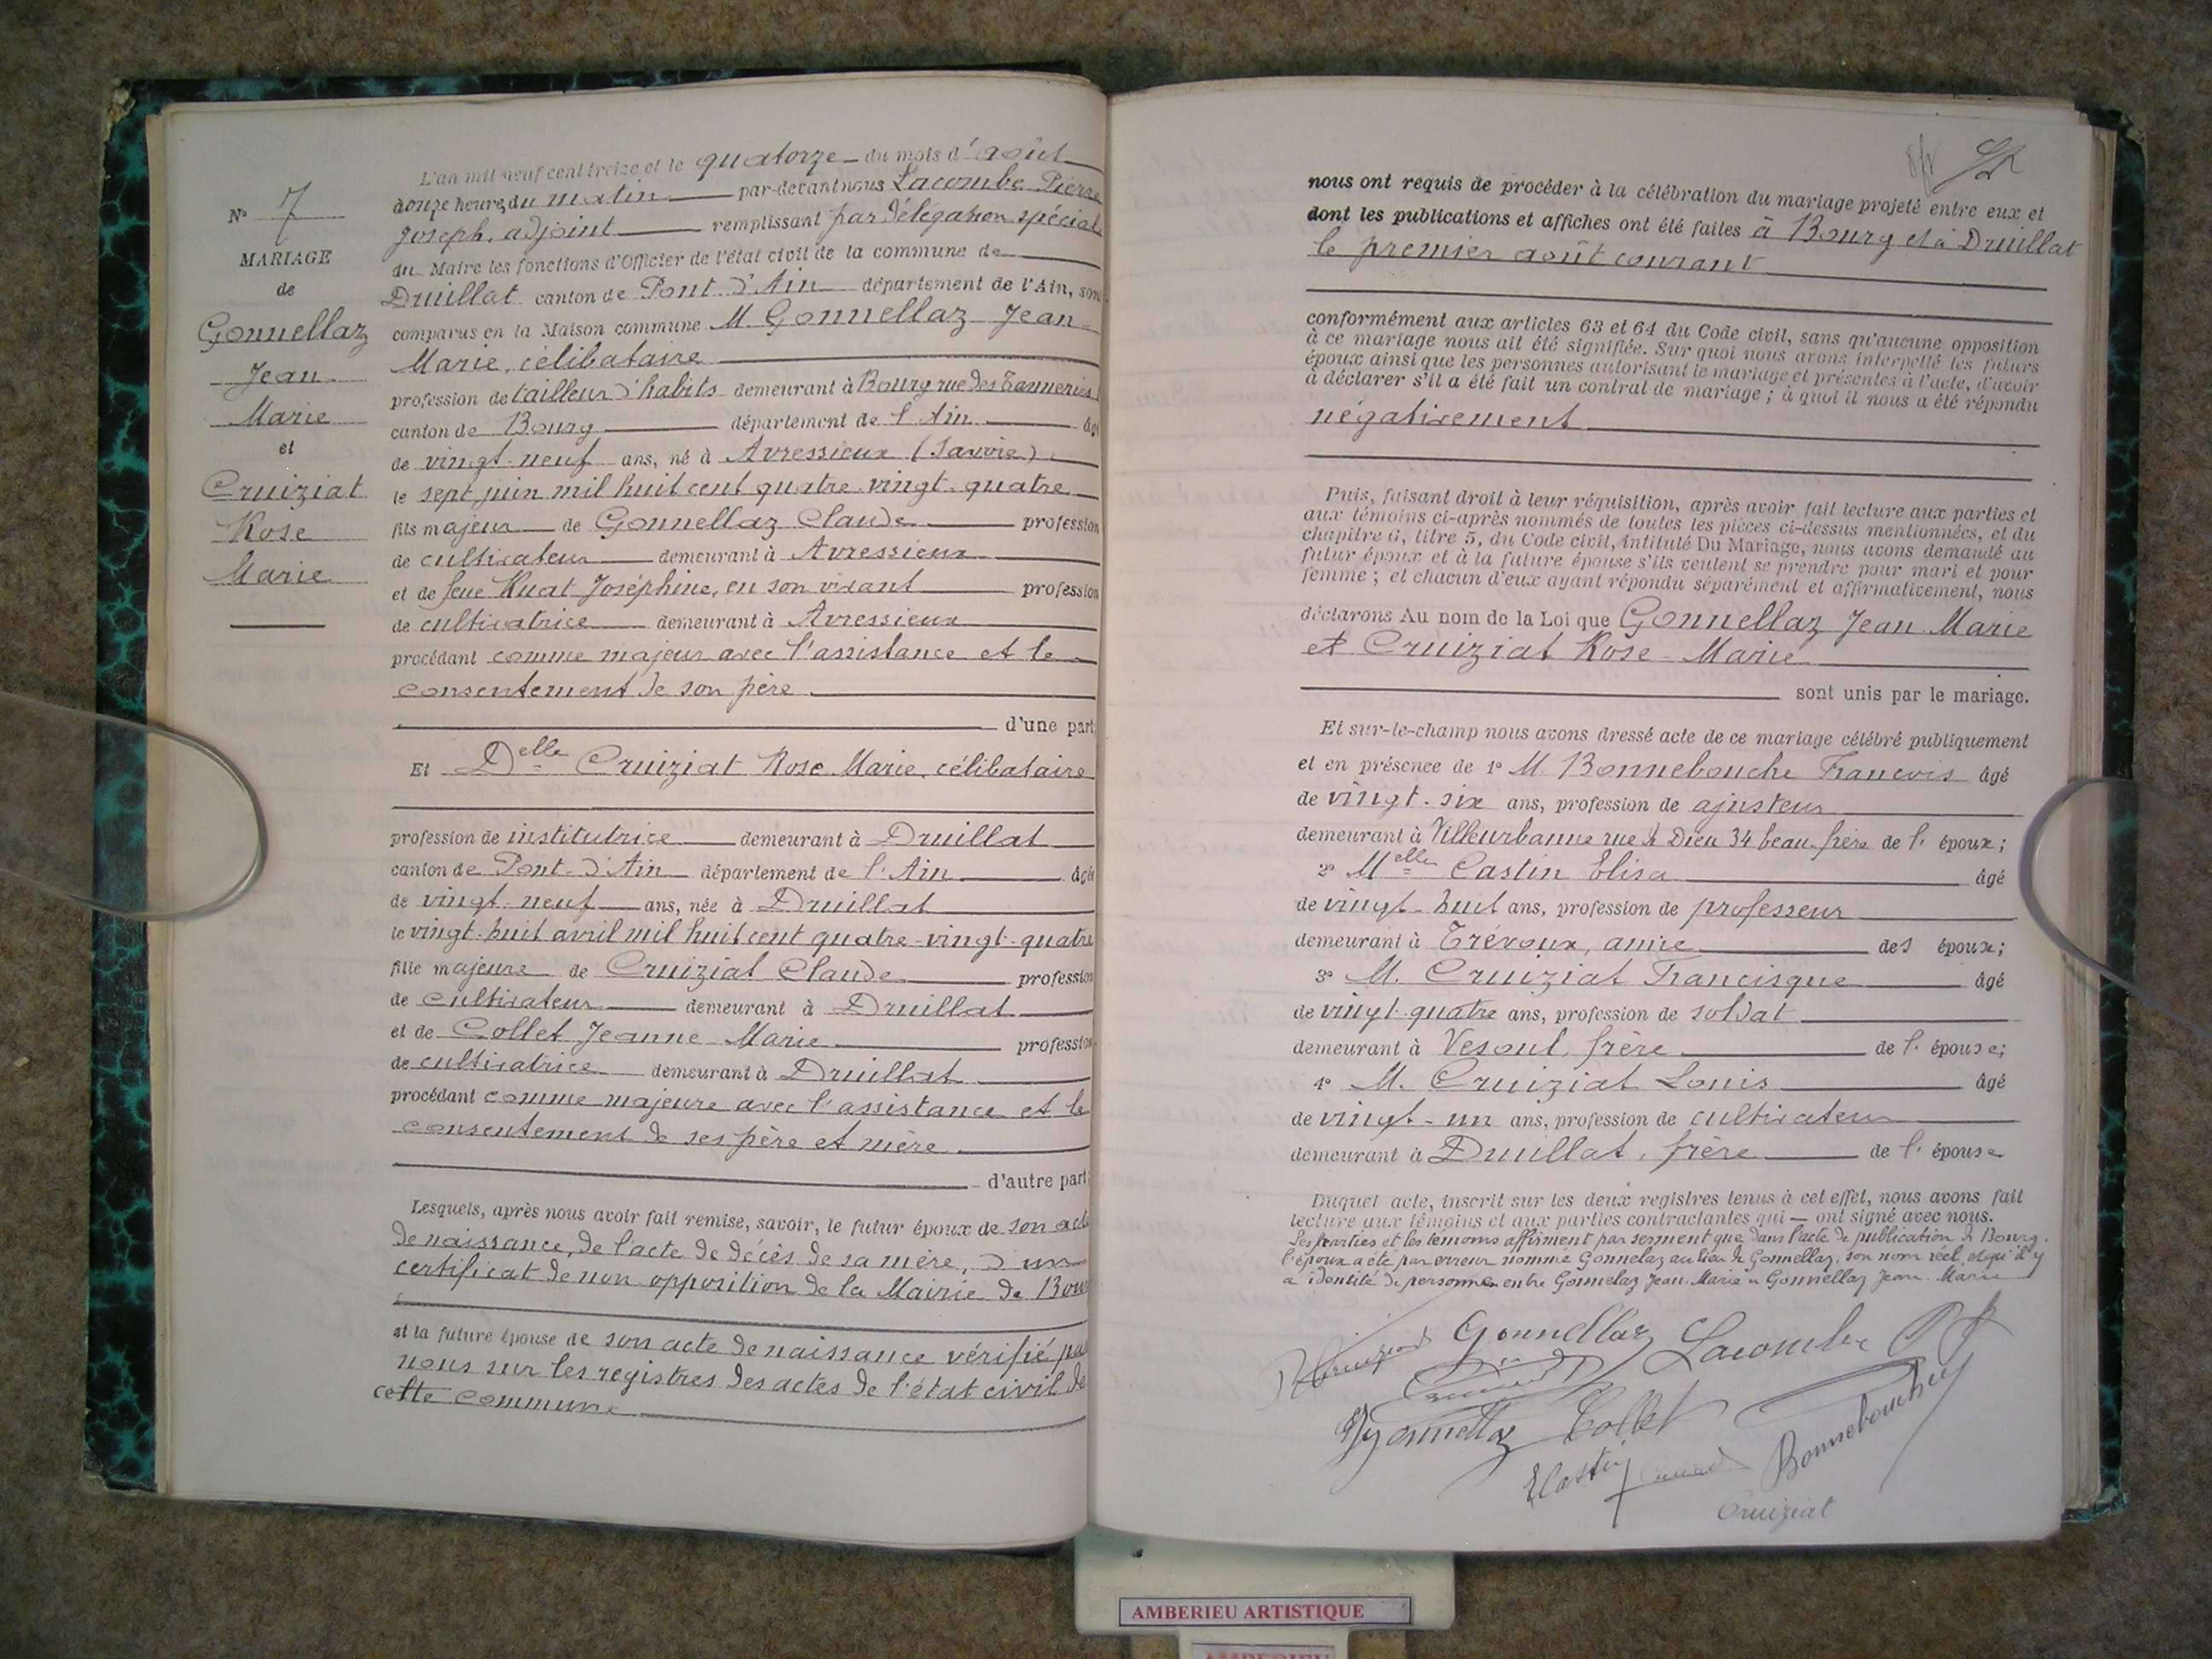 L'an mil neuf cent treize et le quatorze du mois d'août
onze heures du matin par-devant nous Lacombe Pierre
Joseph, adjoint remplissant par délégation spéciale
du Maire les fonctions d'Officier de l'état civil de la commune de
Druillat canton de Pont d'Ain département de l'Ain, sont
comparus en la Maison commune M. Gonnellaz Jean-
Marie, célibataire
profession de tailleur d'habits demeurant à Bourg rue des Tanneries
canton de Bourg département de l'Ain âgé
de vingt-neuf ans, né à Avressieux (Savoie)
le sept juin mil huit cent quatre-vingt-quatre
fils majeur de Gonnellaz Claude profession
de cultivateur demeurant à Avressieux
et de feue Ruat Joséphine, en son vivant profession
de cultivatrice demeurant à Avressieux
procédant comme majeur avec l'assistance et le
consentement de son père
d'une part
Et Delle Cruiziat Rose Marie, célibataire
profession de institutrice demeurant à Druillat
canton de Pont-d'Ain département de l'Ain âgée
de vingt-neuf ans, née à Druillat
le vingt-huit avril mil huit cent quatre-vingt-quatre
fille majeure de Cruiziat Claude profession
de cultivateur demeurant à Druillat
et de Collet Jeanne-Marie profession
de cultivatrice demeurant à Druillat
procédant comme majeure avec l'assistance et le
consentement de ses père et mère
d'autre part
Lesquels, après nous avoir fait remise, savoir, le futur époux de son acte
de naissance, de l'acte de décès de sa mère, d'un
certificat de non opposition de la Mairie de Bourg
et la future épouse de son acte de naissance vérifié par
nous sur les registres des actes de l'état civil de
cette commune
N° 7
MARIAGE
de
Gonnellaz
Jean
Marie
et
Cruiziat
Rose
Marie
nous ont requis de procéder à la célébration du mariage projeté entre eux et
dont les publications et affiches ont été faites à Bourg et à Druillat
le premier août courant
conformément aux articles 63 et 64 du Code civil, sans qu'aucune opposition
à ce mariage nous ait été signifiée. Sur quoi nous avons interpellé les futurs
époux ainsi que les personnes autorisant le mariage et présentes à l'acte, d'avoir
à déclarer s'il a été fait un contrat de mariage ; à quoi il nous a été répondu
négativement
Puis, faisant droit à leur réquisition, après avoir fait lecture aux parties et
aux témoins ci-après nommés de toutes les pièces ci-dessus mentionnées, et du
chapitre 6, titre 5, du Code civil, intitulé Du Mariage, nous avons demandé au
futur époux et à la future épouse s'ils veulent se prendre pour mari et pour
femme ; et chacun d'eux ayant répondu séparément et affirmativement, nous
déclarons Au nom de la Loi que Gonnellaz Jean Marie
et Cruiziat Rose-Marie
sont unis par le mariage.
Et sur-le-champ nous avons dressé acte de ce mariage célébré publiquement
et en présence de 1° M. Bonnebouche Francois âgé
de vingt-six ans, profession de ajusteur
demeurant à Villeurbanne rue Dieu 34 beau-frère de l'époux ;
2° Melle Castin Elisa âgé
de vingt-huit ans, profession de professeur
demeurant à Trévoux, amie des époux ;
3° M. Cruiziat Francisque âgé
de vingt-quatre ans, profession de soldat
demeurant à Vesoul, frère de l'épouse ;
4° M. Cruiziat Louis âgé
de vingt-un ans, profession de cultivateur
demeurant à Druillat, frère de l'épouse
Duquel acte, inscrit sur les deux registres tenus à cet effet, nous avons fait
lecture aux témoins et aux parties contractantes qui — ont signé avec nous.
Les parties et les témoins affirment par serment que dans l'acte de publication de Bourg,
l'époux a été par erreur nommé Gonnelaz au lieu de Gonnellaz, son nom réel et qu'il y
a identité de personne entre Gonnelaz Jean-Marie et Gonnellaz Jean-Marie
Gonnellaz Lacombe
Gonnellaz Collet
ECastin Bonnebouche
Cruiziat
AMBERIEU ARTISTIQUE
AMBERIEU